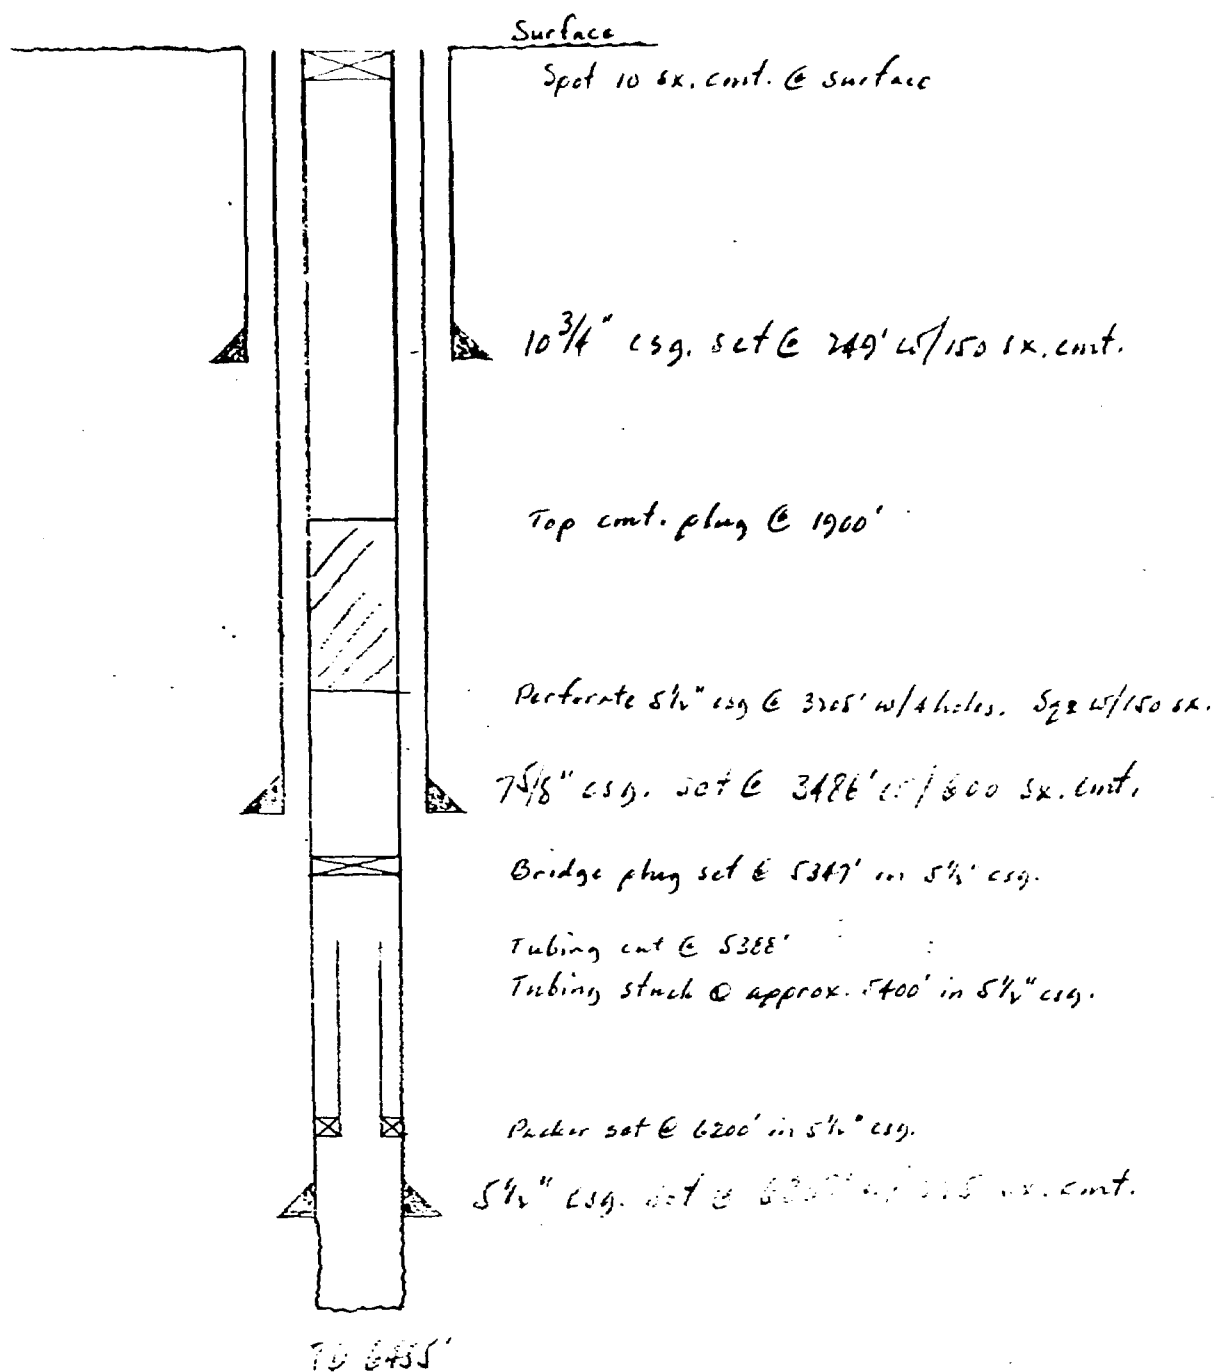 Surface
Spot 10 sx. cmt. @ surface
10 3/4" csg. set @ 249' w/150 sx. cmt.
Top cmt. plug @ 1900'
Perforate 5 1/2" csg @ 3205' w/4 holes. Sqz w/150 sx.
7 5/8" csg. set @ 3486' w/600 sx. cmt.
Bridge plug set @ 5347' in 5 1/2" csg.
Tubing cut @ 5388'
Tubing stuck @ approx. 5400' in 5 1/2" csg.
Packer set @ 6200' in 5 1/2" csg.
5 1/2" csg. set @ sx. cmt.
TD